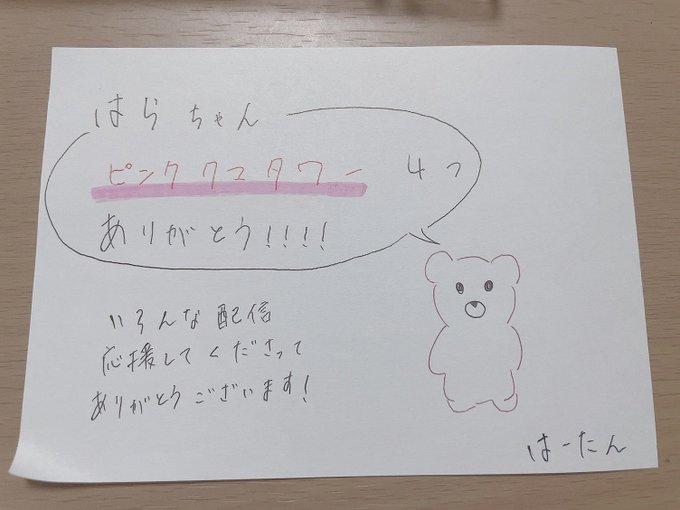 はらちゃん
ピンククマタワー 4つ
ありがとう!!!!
いろんな配信
応援してくださって
ありがとうございます!
はーたん